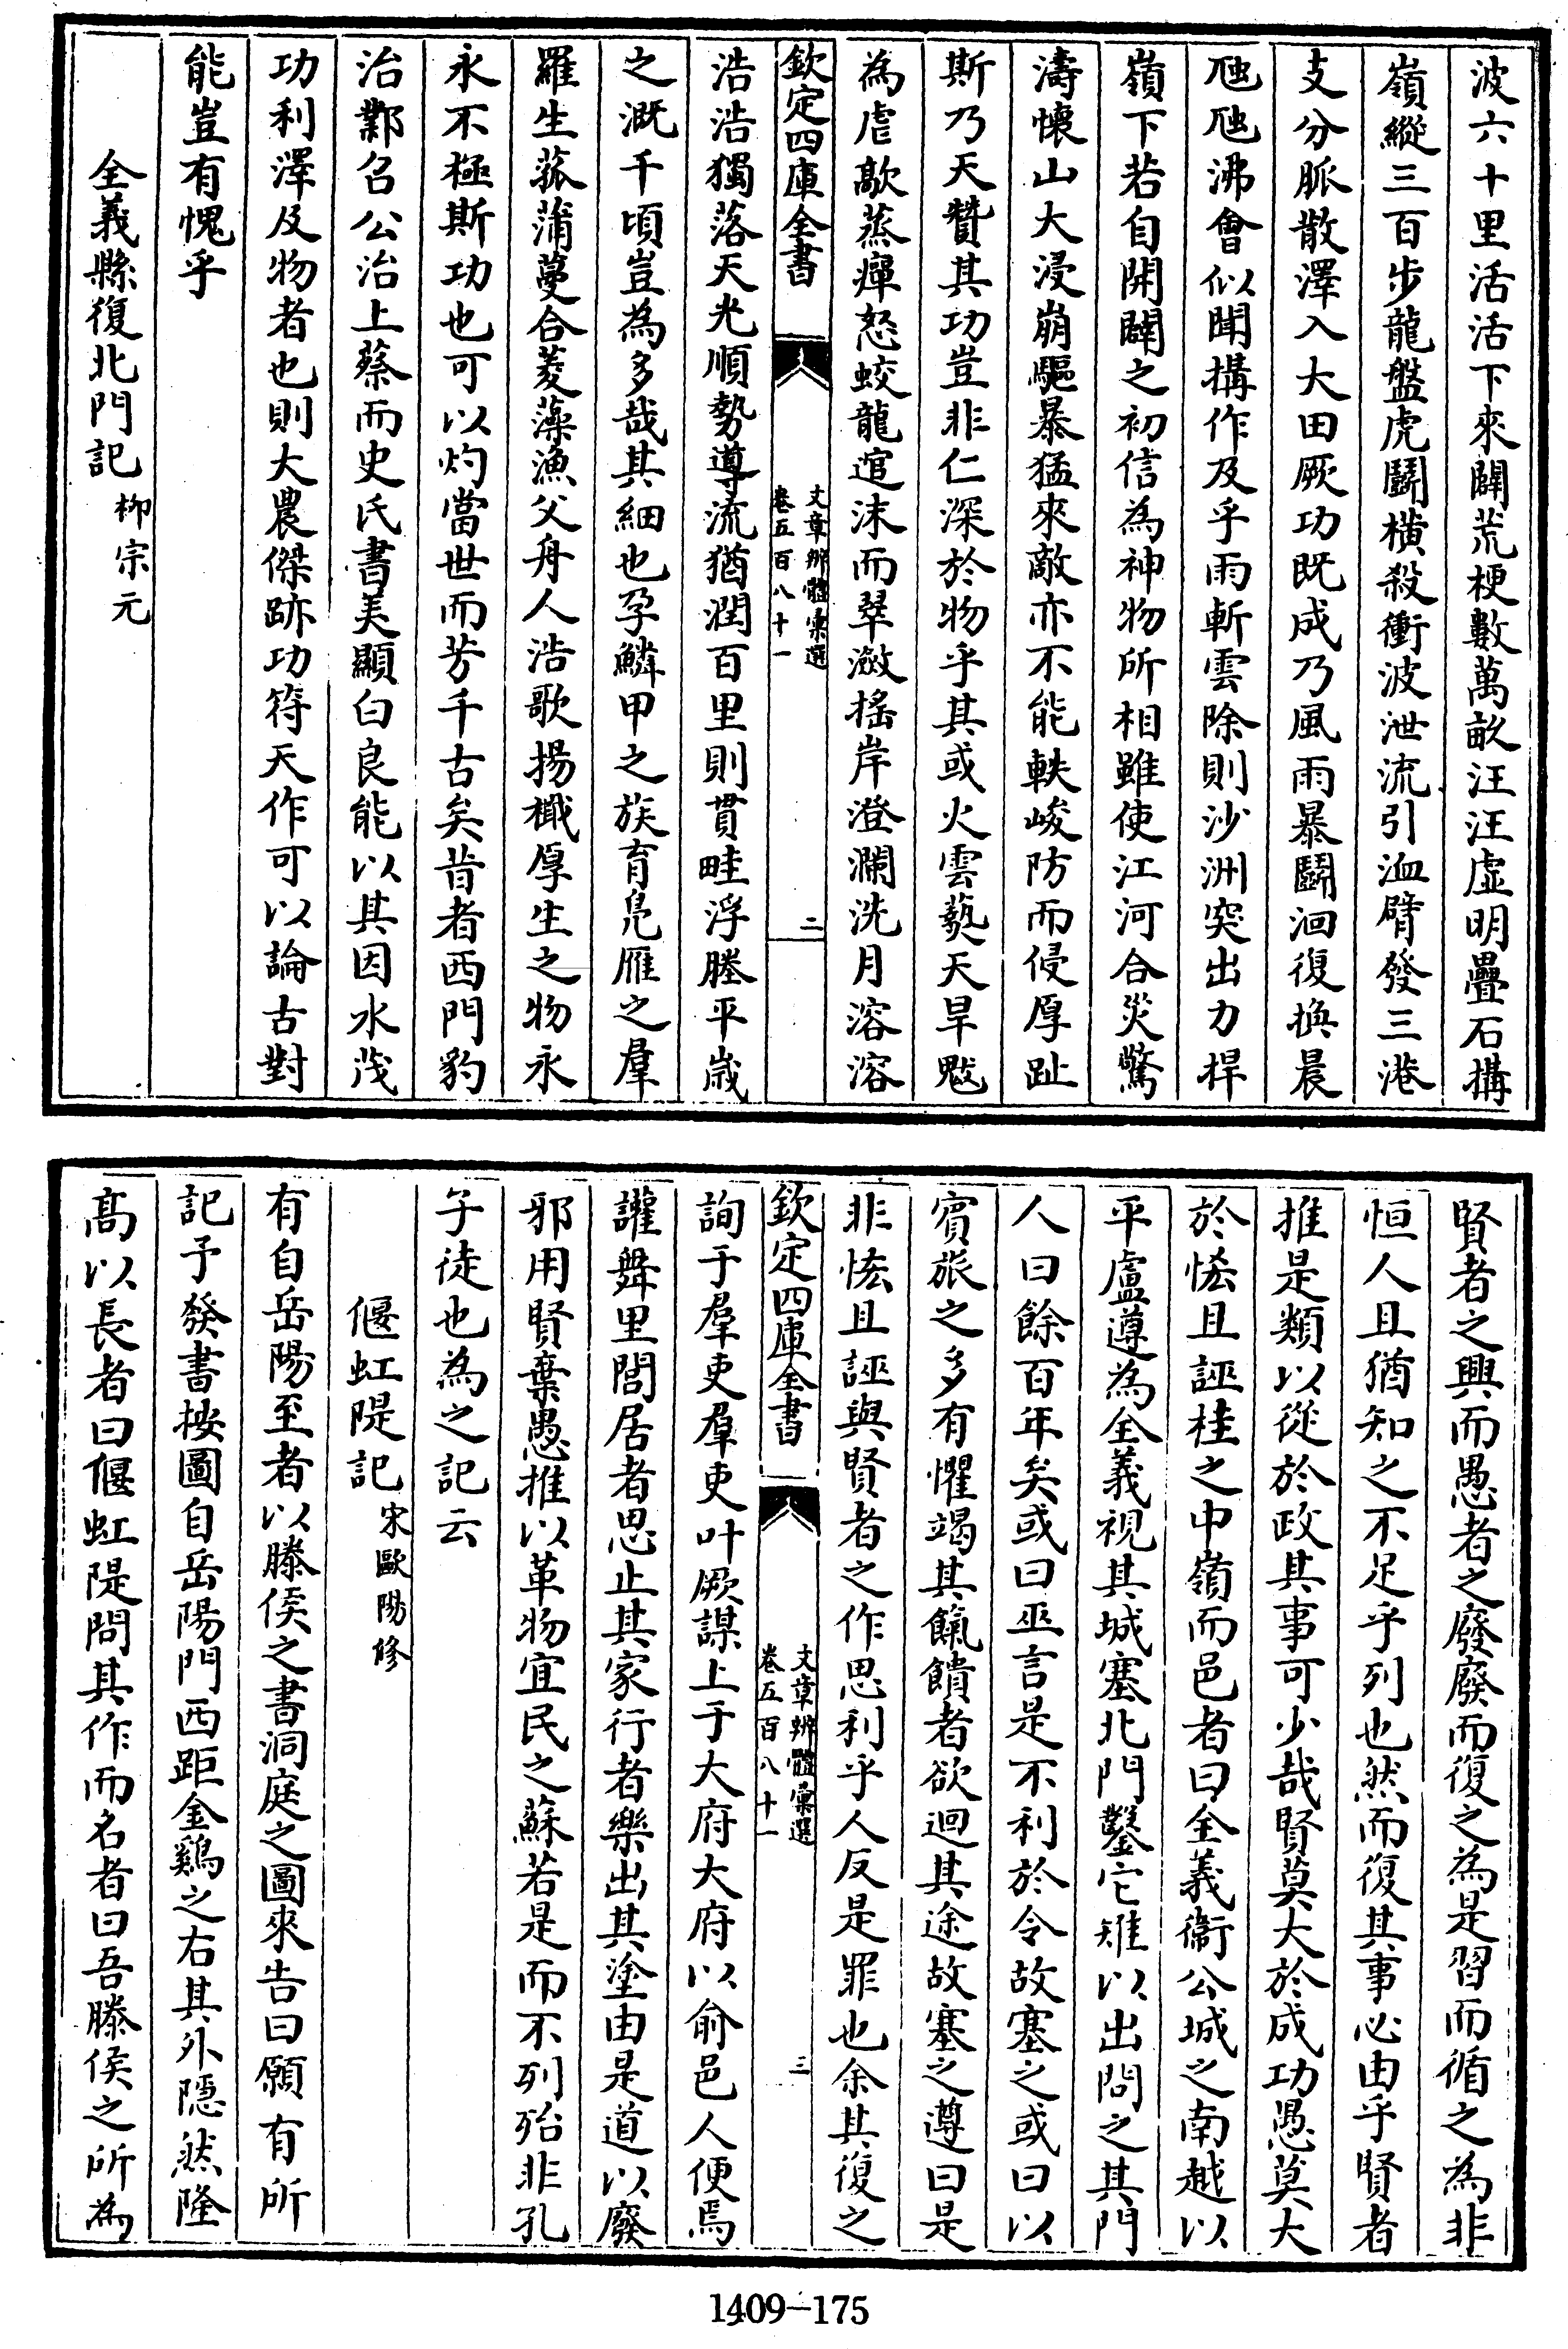 波六十里活活下來闢荒梗數萬畝汪汪虛明疊石搆
嶺縱三百步龍盤虎鬬橫殺衝波泄流引洫臂發三港
支分脈散澤入大田厥功既成乃風雨暴鬬洄復換晨
虺虺沸會似聞搆作及乎雨斬雲除則沙洲突出力捍
嶺下若自開闢之初信為神物所相雖使江河合災驚
濤懷山大浸崩驅暴猛來敵亦不能軼峻防而侵厚趾
斯乃天贊其功豈非仁深於物乎其或火雲爇天旱魃
為虐歊蒸癉怒蛟龍逭沫而翠瀲搖岸澄瀾洗月溶溶
欽定四庫全書
文章辨體彙選
卷五百八十一
二
浩浩獨落天光順勢導流猶潤百里則貫畦浮塍平歲
之溉千頃豈為多哉其細也孕鱗甲之族育鳧雁之羣
羅生菰蒲蔓合菱藻漁父舟人浩歌揚檝厚生之物永
永不極斯功也可以灼當世而芳千古矣昔者西門豹
治鄴召公治上蔡而史氏書美顯白良能以其因水茂
功利澤及物者也則大農傑跡功符天作可以論古對
能豈有愧乎
全義縣復北門記 柳宗元
賢者之興而愚者之廢廢而復之為是習而循之為非
恒人且猶知之不足乎列也然而復其事必由乎賢者
推是類以從於政其事可少哉賢莫大於成功愚莫大
於恡且誣桂之中嶺而邑者曰全義衞公城之南越以
平盧遵為全義視其城塞北門鑿它雉以出問之其門
人曰餘百年矣或曰巫言是不利於令故塞之或曰以
賓旅之多有懼竭其餼饋者欲迴其途故塞之遵曰是
非恡且誣與賢者之作思利乎人反是罪也余其復之
欽定四庫全書
文章辨體彙選
卷五百八十一
三
詢于羣吏羣吏叶厥謀上于大府大府以俞邑人便焉
讙舞里閭居者思止其家行者樂出其塗由是道以廢
邪用賢棄愚推以革物宜民之蘇若是而不列殆非孔
子徒也為之記云
偃虹隄記 宋歐陽修
有自岳陽至者以滕侯之書洞庭之圖來告曰願有所
記予發書按圖自岳陽門西距金鷄之右其外隱然隆
高以長者曰偃虹隄問其作而名者曰吾滕侯之所為
1409-175